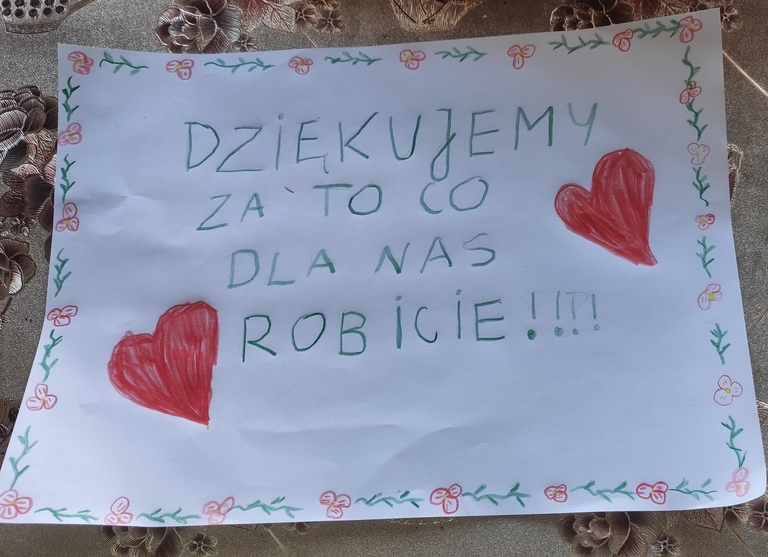 DZIĘKUJEMY
ZA TO CO
DLA NAS
ROBICIE!!!!